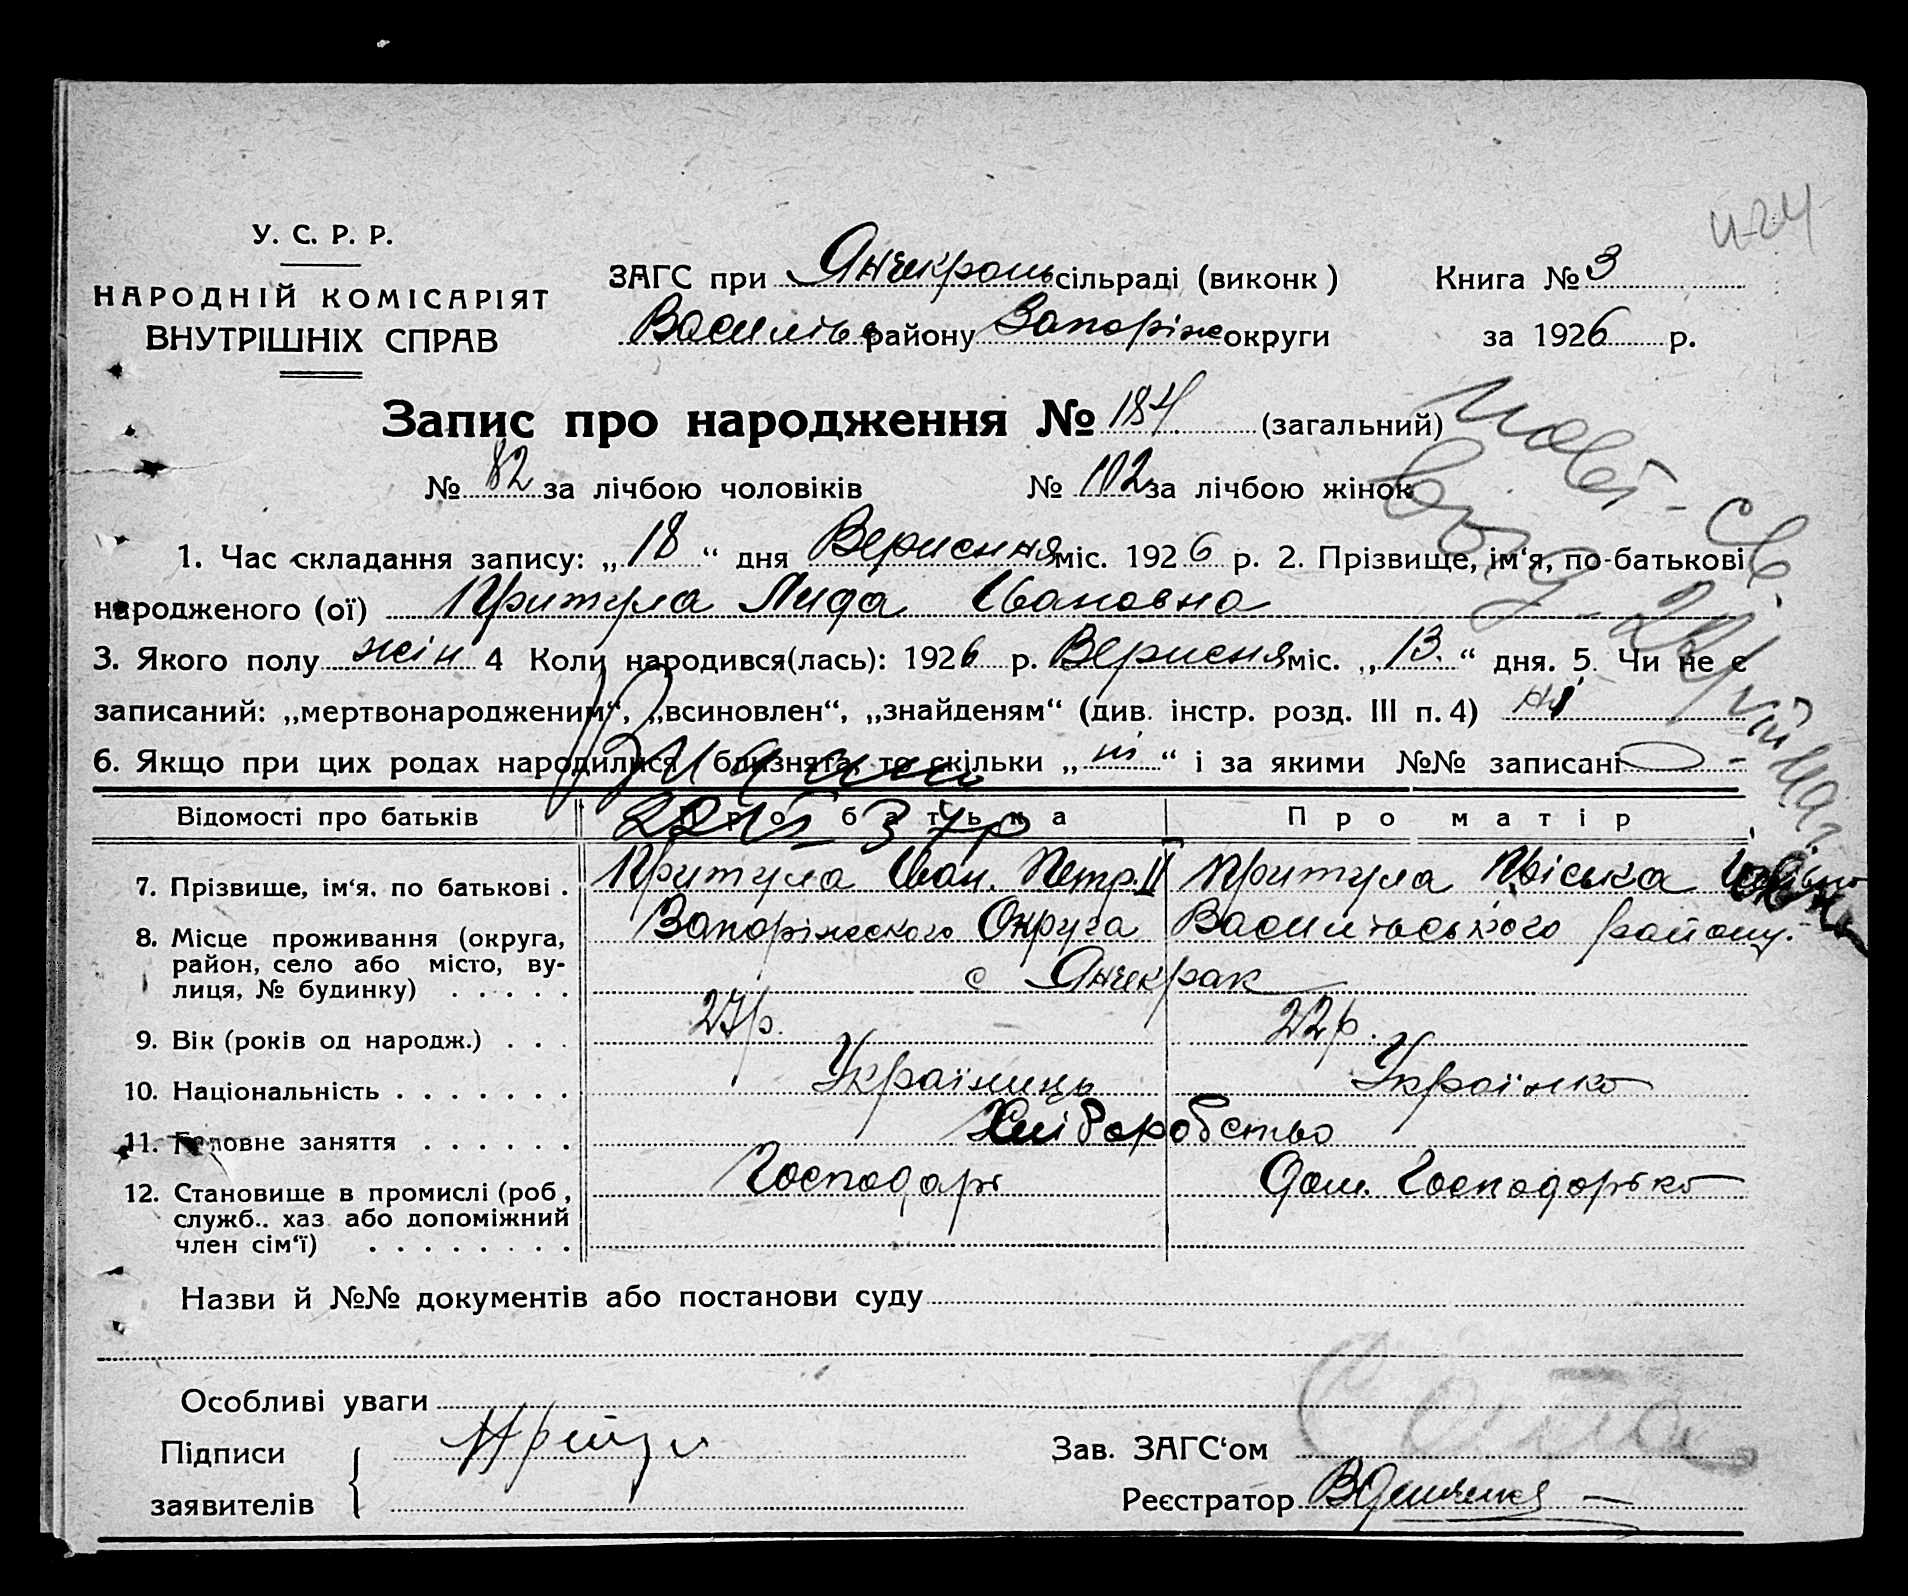 и-24
У. С. Р. Р.
НАРОДНІЙ КОМІСАРІЯТ
ВНУТРІШНІХ СПРАВ
ЗАГС при Янчекрак сільраді (виконк )
Книга № 3
Василівс району Запоріж округи
за 1926 р.
Запис про народження № 184 (загальний)
№ 82 за лічбою чоловіків № 102 за лічбою жінок
1. Час складання запису: „ 18 “ дня Вересння міс. 1926 р. 2. Прізвище, ім‘я, по-батькові
народженого (ої) Притула Лида Ивановна
3. Якого полу жін 4 Коли народився(лась): 1926 р. Вересня міс. „ 13. “ дня. 5. Чи не є
записаний: „мертвонародженим“, „всиновлен“, „знайденям“ (див. інстр. розд. III п. 4) ні
6. Якщо при цих родах народилися близнята, то скільки „ ні “ і за якими №№ записані –
Відомості про батьків
Про батька
Про матір
37р
7. Прізвище, ім‘я, по батькові .
Притула Иван. Петр. II
Притула
8. Місце проживання (округа,
район, село або місто, ву-
лиця, № будинку) . . . . .
Запоріжского Округа Василівського району.
с Янчекрак
9. Вік (років од народж.) . . .
27р.
22р.
10. Національність . . . . . . .
Українець
Українка
11. Головне заняття . . . . . .
Хліборобство
12. Становище в промислі (роб ,
служб.. хаз або допоміжний
член сім‘ї) . . . . . . . .
Господарь
Дом. Господарька
Назви й №№ документів або постанови суду
Особливі уваги
Підписи
заявителів
Зав. ЗАГС‘ом
Реєстратор